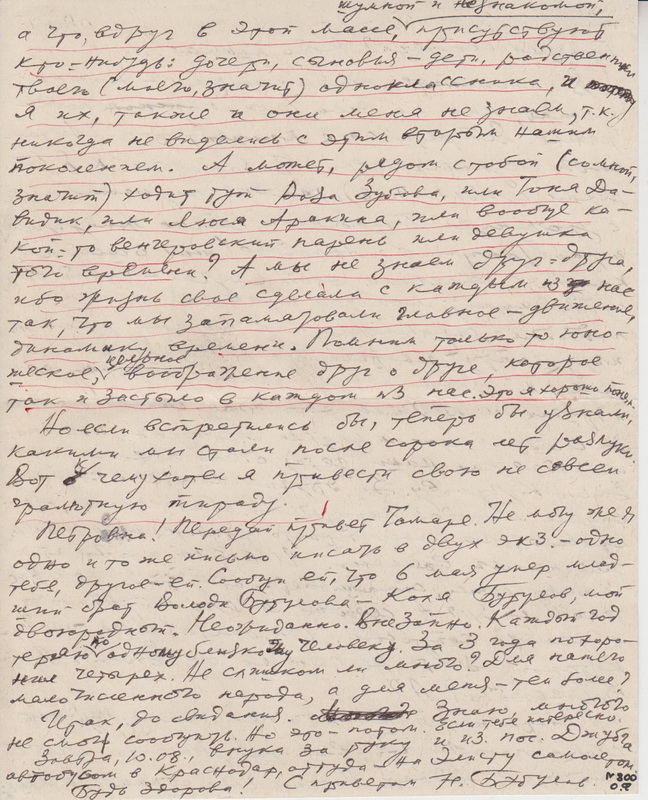 шумной и незнакомой,
а что, вдруг в этой массе, присутствуют
кто=нибудь: дочери, сыновья – дети, родственники
твоего (моего, значит) одноклассника, и
я их, также и они меня не знаем, т.к.
никогда не виделись с этим вторым нашим
поколением. А может, рядом с тобой (со мной,
значит) ходит тут Роза Зубова, или Тоня Да-
видик, или Люся Аракина, или вообще ка-
кой=то венгеровский парень или девушка
того времени? А мы не знаем друг=друга,
ибо жизнь свое сделала с каждым из нас
так, что мы запамятовали главное – движение,
динамику времени. Помним только то юно-
шеское, цельное воображение друг о друге, которое
так и застыло в каждом из нас. Это я хорошо понял.
Но если встретились бы, теперь бы узнали,
какими мы стали после сорока лет разлуки.
Вот к чему хотел я привести свою не совсем
грамотную тираду.
Петровна! Передай привет Тамаре. Не могу же я
одно и то же письмо писать в двух экз. – одно
тебе, другое – ей. Сообщи ей, что 6 мая умер млад-
ший брат Володи Бугулова – Коля Бугулов, мой
двоюродный. Неожиданно. Внезапно. Каждый год
теряю по одному близкому человеку. За 3 года похоро-
нил четырех. Не слишком ли много? Для нашего
малочисленного народа, а для меня – тем более?
Итак, до свидания. Знаю, многого
не смог сообщить. Но это – потом. Если тебе интересно.
Завтра, 10.08., внука за руку и из пос. Джубга
автобусом в Краснодар, оттуда – на Элисту самолетом.
Будь здорова! С приветом Н. Бугулов.
№ 800
о.я